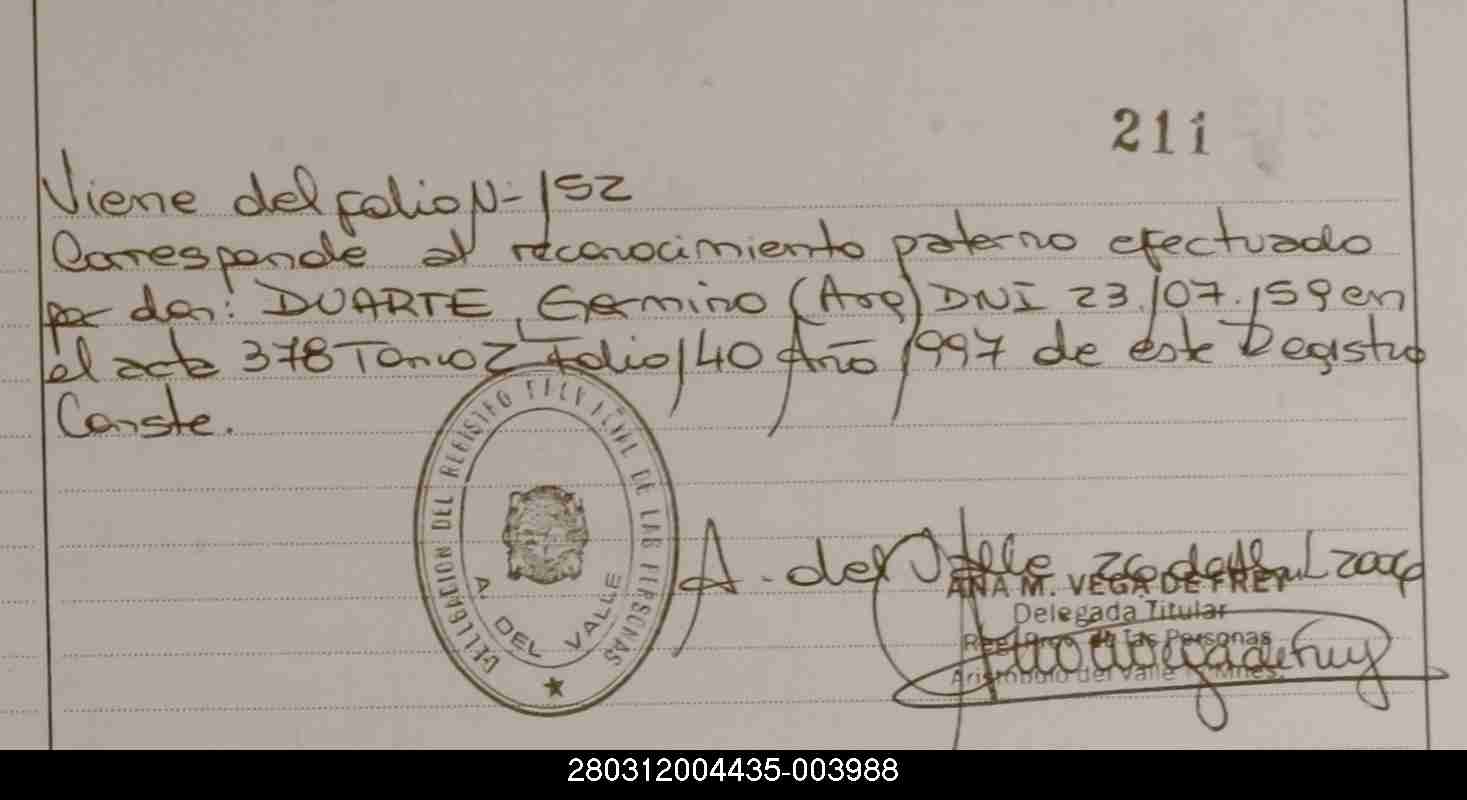 211
Viene del folio N- 152
Corresponde al reconocimiento paterno efectuado
por don: DUARTE, Germino (Arg) DNI 23./07./59 en
el acta 378 Tomo 2 Folio 140 Año 1997 de este Registro
Conste.
DELEGACION DEL REGISTRO PROVINCIAL DE LAS PERSONAS
A. DEL VALLE
A. del Valle 26 de Abril 2004
ANA M. VEGA DE FREY
Delegada Titular
Registro de las Personas
Aristóbulo del Valle Mnes.
280312004435-003988